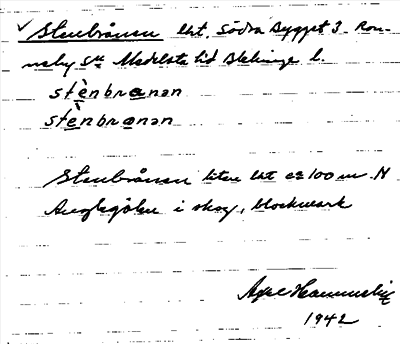 ✓ Stenbrånan lht. Södra Bygget 3 Ron-
neby sn Medelsta hd Blekinge l.
stènbranan
stènbranan
Stenbrånan liten lht ca 100 m N
Ängsgölen i skog, blockmark
Axel
1942